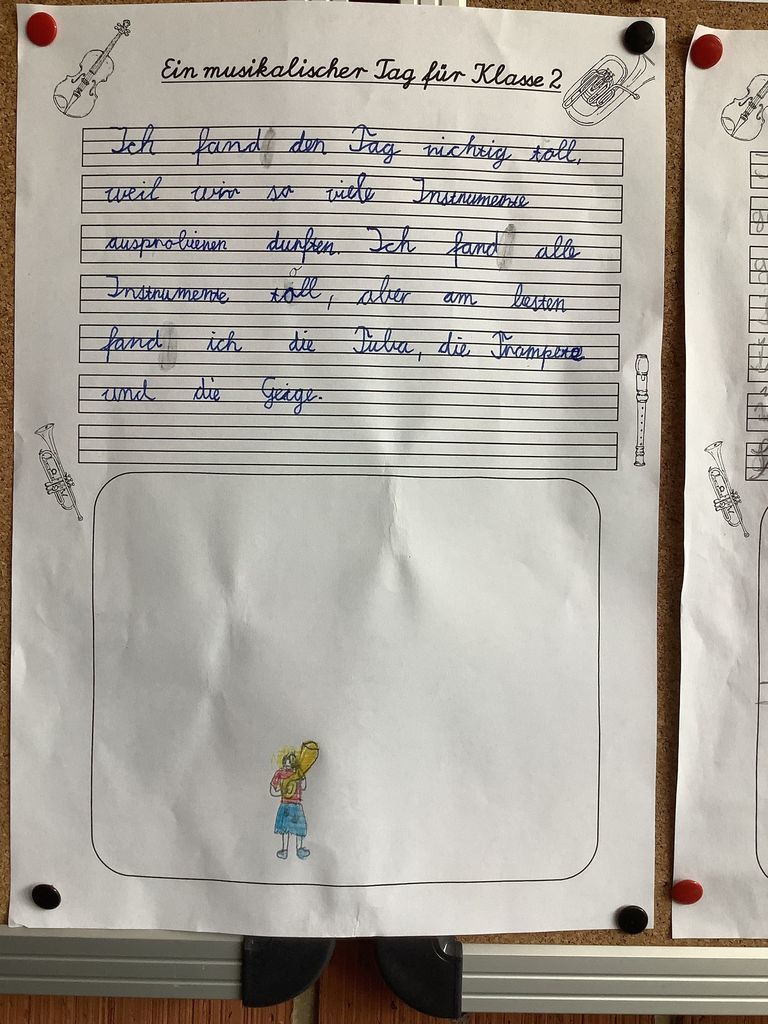 Ein musikalischer Tag für Klasse 2
Ich fand den Tag richtig toll,
weil wir so viele Instrumente
ausprobieren durften. Ich fand alle
Instrumente toll, aber am besten
fand ich die Tuba, die Trompete
und die Geige.